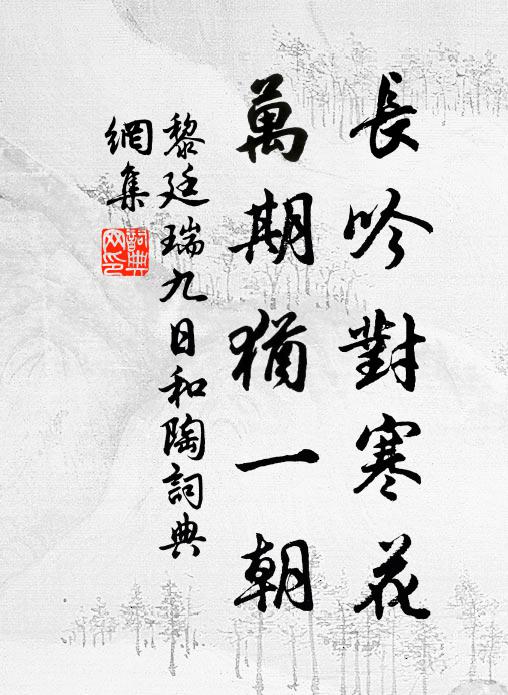 長吟對寒花
萬期猶一朝
黎廷瑞九日和陶詞典
網集
詞典
网印